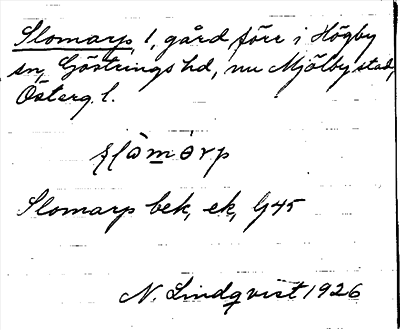 Slomarp 1, gård förr i Högby
sn, Göstrings hd, nu Mjölby stad,
Österg. l.
Slomarp bek, ek, G45
N. Lindqvist 1926